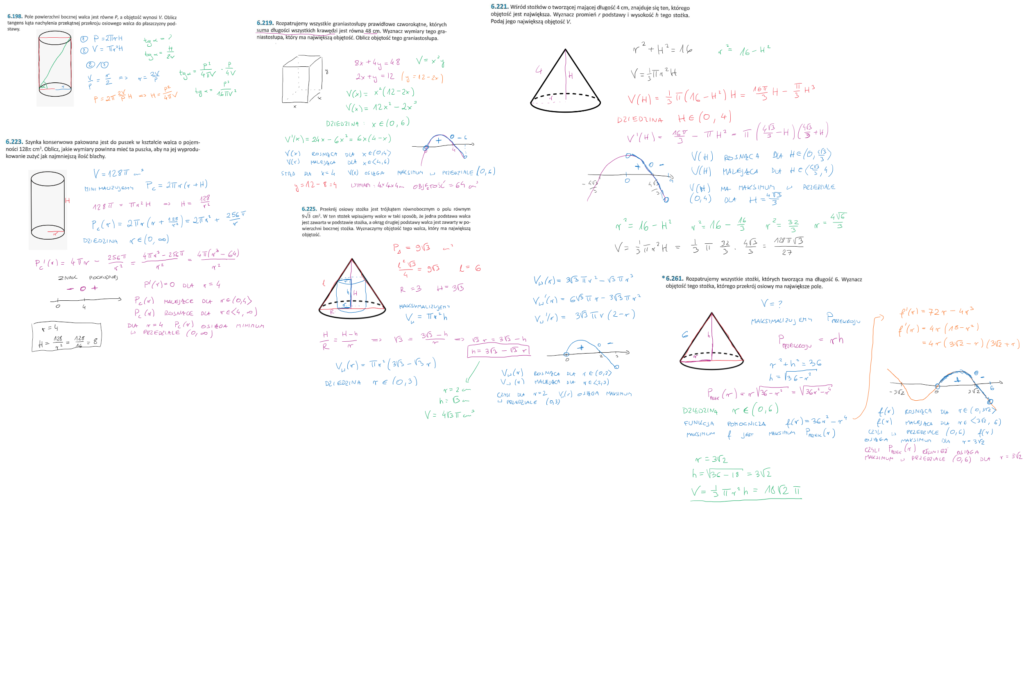 6.198. Pole powierzchni bocznej walca jest równe P, a objętość wynosi V. Oblicz
tangens kąta nachylenia przekątnej przekroju osiowego walca do płaszczyzny pod-
stawy.
① P = 2πrH
② V = πr²H
tg α = ?
tg α = H/2r
6.223. Szynka konserwowa pakowana jest do puszek w kształcie walca o pojem-
ności 128π cm³. Oblicz, jakie wymiary powinna mieć ta puszka, aby na jej wyprodu-
kowanie zużyć jak najmniejszą ilość blachy.
V = 128π cm³
Pc = 2πr(r+H)
128π = πr²H => H = 128/r²
Pc(r) = 2πr(r + 128/r²) = 2πr² + 256π/r
DZIEDZINA r ∈ (0, ∞)
Pc'(r) = 4πr - 256π/r² = 4πr³ - 256π/r² = 4π(r³ - 64)/r²
ZNAK POCHODNEJ
- 0 +
0 4
P'(r) = 0 DLA r = 4
Pc(r) MALEJĄCE DLA r ∈ (0,4>
Pc(r) ROSNĄCE DLA r ∈ <4, ∞)
DLA r = 4 Pc(r) OSIĄGA MINIMUM
W PRZEDZIALE (0, ∞)
r = 4
H = 128/r² = 128/16 = 8
6.219. Rozpatrujemy wszystkie graniastosłupy prawidłowe czworokątne, których
suma długości wszystkich krawędzi jest równa 48 cm. Wyznacz wymiary tego gra-
niastosłupa, który ma największą objętość. Oblicz objętość tego graniastosłupa.
8x + 4y = 48 V = x²y
2x + y = 12 (y = 12 - 2x)
V(x) = x²(12 - 2x)
V(x) = 12x² - 2x³
DZIEDZINA x ∈ (0, 6)
V'(x) = 24x - 6x² = 6x(4 - x)
V(x) ROSNĄCA DLA x ∈ (0,4>
V(x) MALEJĄCA DLA x ∈ <4,6)
CZYLI DLA x = 4 V(x) OSIĄGA MAXIMUM W PRZEDZIALE (0,6)
y = 12 - 8 = 4 WYMIAR: 4×4×4 OBJĘTOŚĆ = 64 cm³
6.225. Przekrój osiowy stożka jest trójkątem równobocznym o polu równym
9√3 cm². W ten stożek wpisujemy walce w taki sposób, że jedna podstawa walca
jest zawarta w podstawie stożka, a okrąg drugiej podstawy walca jest zawarty w po-
wierzchni bocznej stożka. Wyznaczmy objętość tego walca, który ma największą
objętość.
l²√3/4 = 9√3 l = 6
R = 3 H = 3√3
MAKSYMALIZUJEMY
Vw = πr²h
H/R = H-h/r => √3 = 3√3-h/r => √3 r = 3√3 - h
h = 3√3 - √3 r
Vw(r) = πr²(3√3 - √3 r)
DZIEDZINA r ∈ (0,3)
r = 2 cm
h = √3 cm
V = 4√3 π cm³
Vw(r) = 3√3 πr² - √3 πr³
Vw'(r) = 6√3 πr - 3√3 πr²
Vw'(r) = 3√3 πr(2 - r)
Vw(r) ROSNĄCA DLA r ∈ (0,2>
Vw(r) MALEJĄCA DLA r ∈ <2,3)
CZYLI DLA r = 2 V(r) OSIĄGA MAXIMUM
W PRZEDZIALE (0,3)
6.221. Wśród stożków o tworzącej mającej długość 4 cm, znajduje się ten, którego
objętość jest największa. Wyznacz promień r podstawy i wysokość h tego stożka.
Podaj jego największą objętość V.
r² + H² = 16 r² = 16 - H²
V = 1/3 πr²H
V(H) = 1/3 π(16 - H²)H = 16π/3 H - π/3 H³
DZIEDZINA H ∈ (0, 4)
V'(H) = 16π/3 - πH² = π(4√3/3 - H)(4√3/3 + H)
V(H) ROSNĄCA DLA H ∈ (0, 4√3/3)
V(H) MALEJĄCA DLA H ∈ <4√3/3, 4)
V(H) MA MAXIMUM W PRZEDZIALE
(0,4) DLA H = 4√3/3
r² = 16 - H² r² = 16 - 16/3 r² = 32/3 r = 4√6/3
V = 1/3 πr²H = 1/3 π 32/3 · 4√3/3 = 128π√3/27
*6.261. Rozpatrujemy wszystkie stożki, których tworząca ma długość 6. Wyznacz
objętość tego stożka, którego przekrój osiowy ma największe pole.
V = ?
MAKSYMALIZUJEMY
= rh
r² + h² = 36
h = √36-r²
(r) = r√36-r² = √36r²-r⁴
DZIEDZINA r ∈ (0, 6)
FUNKCJA POMOCNICZA f(r) = 36r² - r⁴
r = 3√2
h = √36-18 = 3√2
V = 1/3 πr²h = 18√2 π
f'(r) = 72r - 4r³
f'(r) = 4r(18 - r²)
= 4r(3√2 - r)(3√2 + r)
-3√2 0 3√2 6
f(r) ROSNĄCA DLA r ∈ (0, 3√2>
f(r) MALEJĄCA DLA r ∈ <3√2, 6)
CZYLI W PRZEDZIALE (0,6) f(r)
OSIĄGA MAKSIMUM DLA r = 3√2
MAKSIMUM W PRZEDZIALE (0,6) DLA r = 3√2